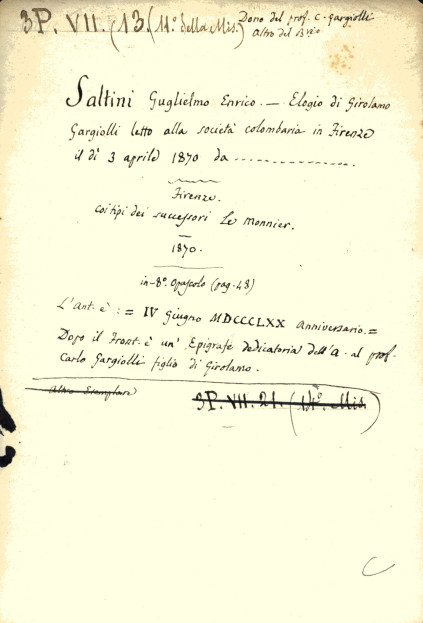 3P. VII. (13. (11º. della Mis.)
Dono del prof. C. Gargiolli
Altro del
Saltini Guglielmo Enrico. — Elogio di Girolamo
Gargiolli letto alla società colombaria in Firenze
il dì 3 aprile 1870 da ---------------.
Firenze.
coi tipi dei successori Le Monnier.
1870.
in-8º. Opuscolo (pag. 48)
L'Ant. è : = IV Giugno MDCCCLXX Anniversario. =
Dopo il Front. è un' Epigrafe dedicatoria dell'A. al prof.
Carlo Gargiolli figlio di Girolamo.
Altro Esemplare
3P. VII. 21. (14º. Mis.)